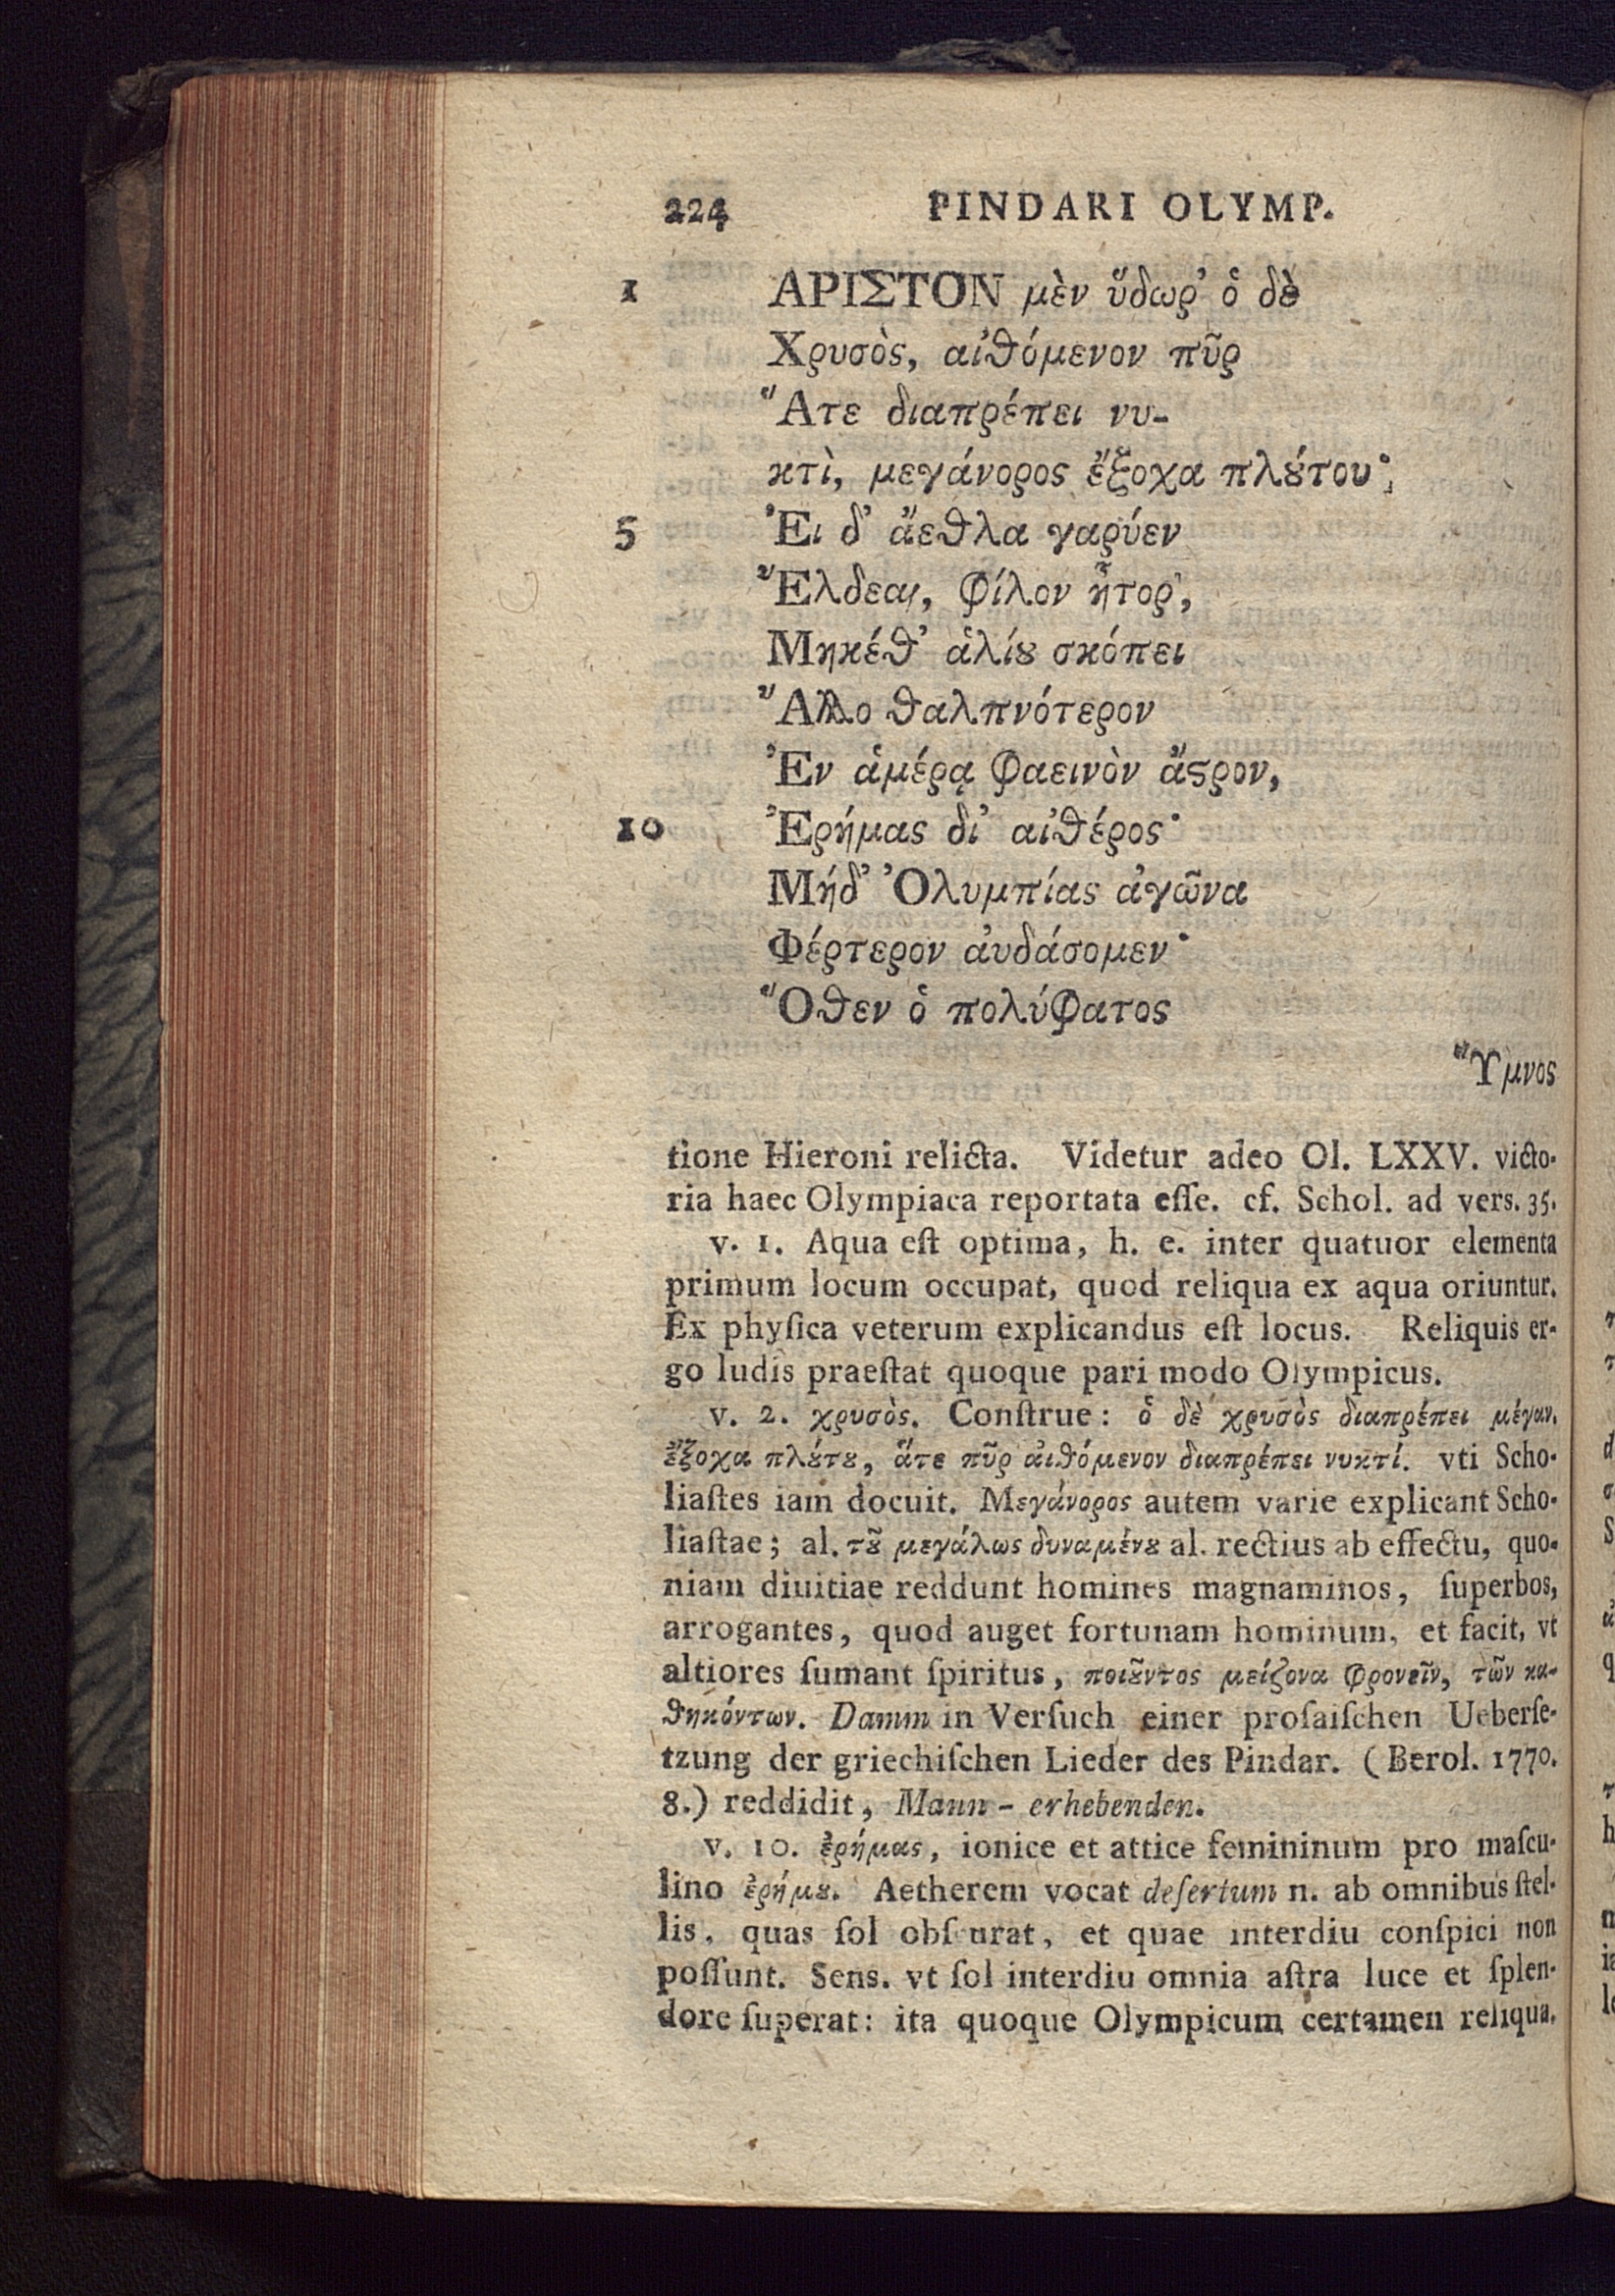 224 PINDARI OLYMP.
1 ΑΡΙΣΤΟΝ μὲν ὕδωρ· ὁ δὲ
Χρυσὸς, αἰθόμενον πῦρ
Ἅτε διαπρέπει νυ-
κτὶ, μεγάνορος ἔξοχα πλȣ́του·
5 Ἐι δ’ ἄεθλα γαρύεν
Ἔλδεαι, φίλον ἦτορ,
Μηκέθ’ ἁλίȣ σκόπει
Ἄλλο θαλπνότερον
Ἐν ἁμέρᾳ φαεινὸν ἄϛρον,
10 Ἐρήμας δι’ αἰθέρος·
Μήδ’ Ὀλυμπίας ἀγῶνα
Φέρτερον ἀυδάσομεν·
Ὅθεν ὁ πολύφατος
Ὕμνος
tione Hieroni relicta. Videtur adeo Ol. LXXV. victo-
ria haec Olympiaca reportata eſſe. cf. Schol. ad vers. 35.
v. 1. Aqua eſt optima, h. e. inter quatuor elementa
primum locum occupat, quod reliqua ex aqua oriuntur.
Ex phyſica veterum explicandus eſt locus. Reliquis er-
go ludis praeſtat quoque pari modo Olympicus.
v. 2. χρυσὸς. Conſtrue: ὁ δὲ χρυσὸς διαπρέπει μέγαν.
ἔξοχα πλȣ́τȣ, ἅτε πῦρ ἀιθόμενον διαπρέπει νυκτί. vti Scho-
liaſtes iam docuit. Μεγάνορος autem varie explicant Scho-
liaſtae; al. τȣ͂ μεγάλως δυναμένȣ al. rectius ab effectu, quo-
niam diuitiae reddunt homines magnaminos, ſuperbos,
arrogantes, quod auget fortunam hominum, et facit, vt
altiores ſumant ſpiritus, ποιȣ͂ντος μείζονα φρονεῖν, τῶν κα-
θηκόντων. Damm in Verſuch einer proſaiſchen Ueberſe-
tzung der griechiſchen Lieder des Pindar. (Berol. 1770.
8.) reddidit, Mann - erhebenden.
v. 10. ἐρήμας, ionice et attice femininum pro maſcu-
lino ἐρήμȣ. Aetherem vocat deſertum n. ab omnibus ſtel-
lis, quas ſol obſ urat, et quae interdiu conſpici non
poſſunt. Sens. vt ſol interdiu omnia aſtra luce et ſplen-
dore ſuperat: ita quoque Olympicum certamen reliqua.